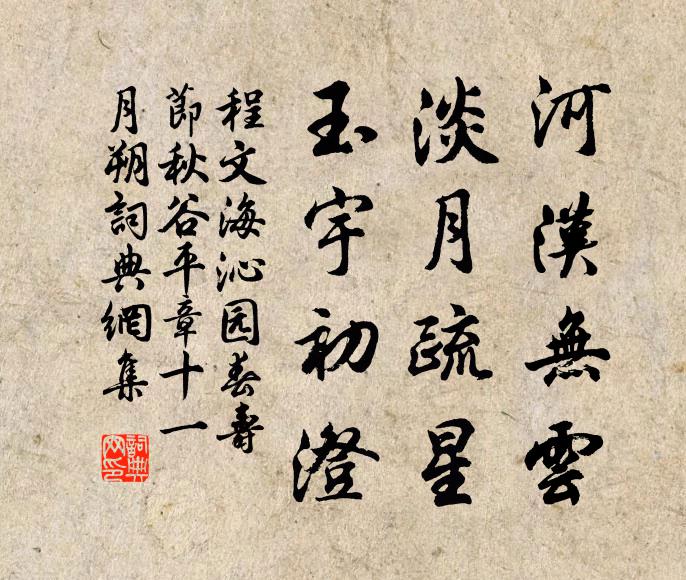 河漢無雲
淡月疏星
玉宇初澄
程文海沁园春壽
節秋谷平章十一
月朔詞典網集
詞典網印